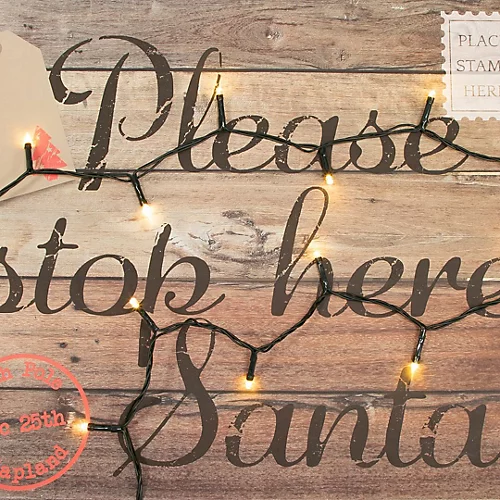 Please
stop here
Santa
PLAC
STAM
HER
h Pole
c 25th
apland